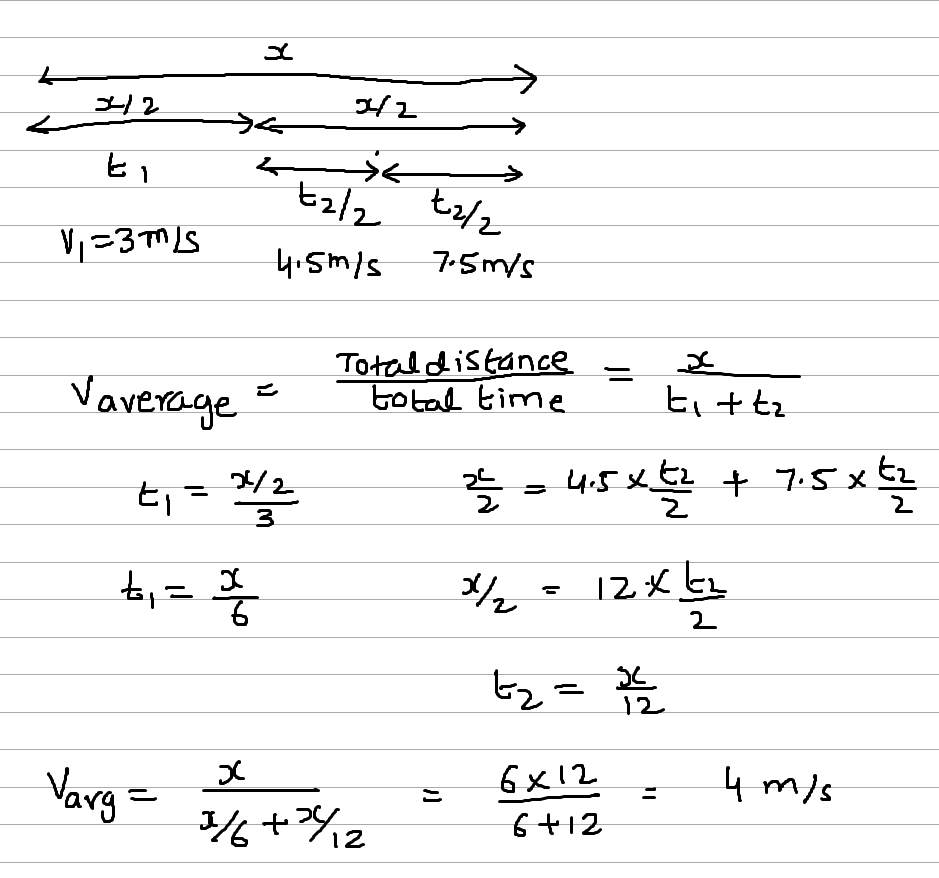 x
x/2 x/2
t1 t2/2 t2/2
V1=3m/s 4.5m/s 7.5m/s
Vaverage = Total distance/total time = x/t1+t2
t1 = x/2/3 x/2 = 4.5 × t2/2 + 7.5 × t2/2
t1 = x/6 x/2 = 12 × t2/2
t2 = x/12
Varg = x/x/6+x/12 = 6×12/6+12 = 4 m/s